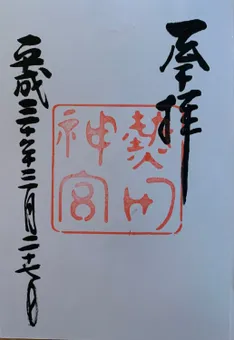 奉拝
熱田
神宮
平成三十年三月二十七日